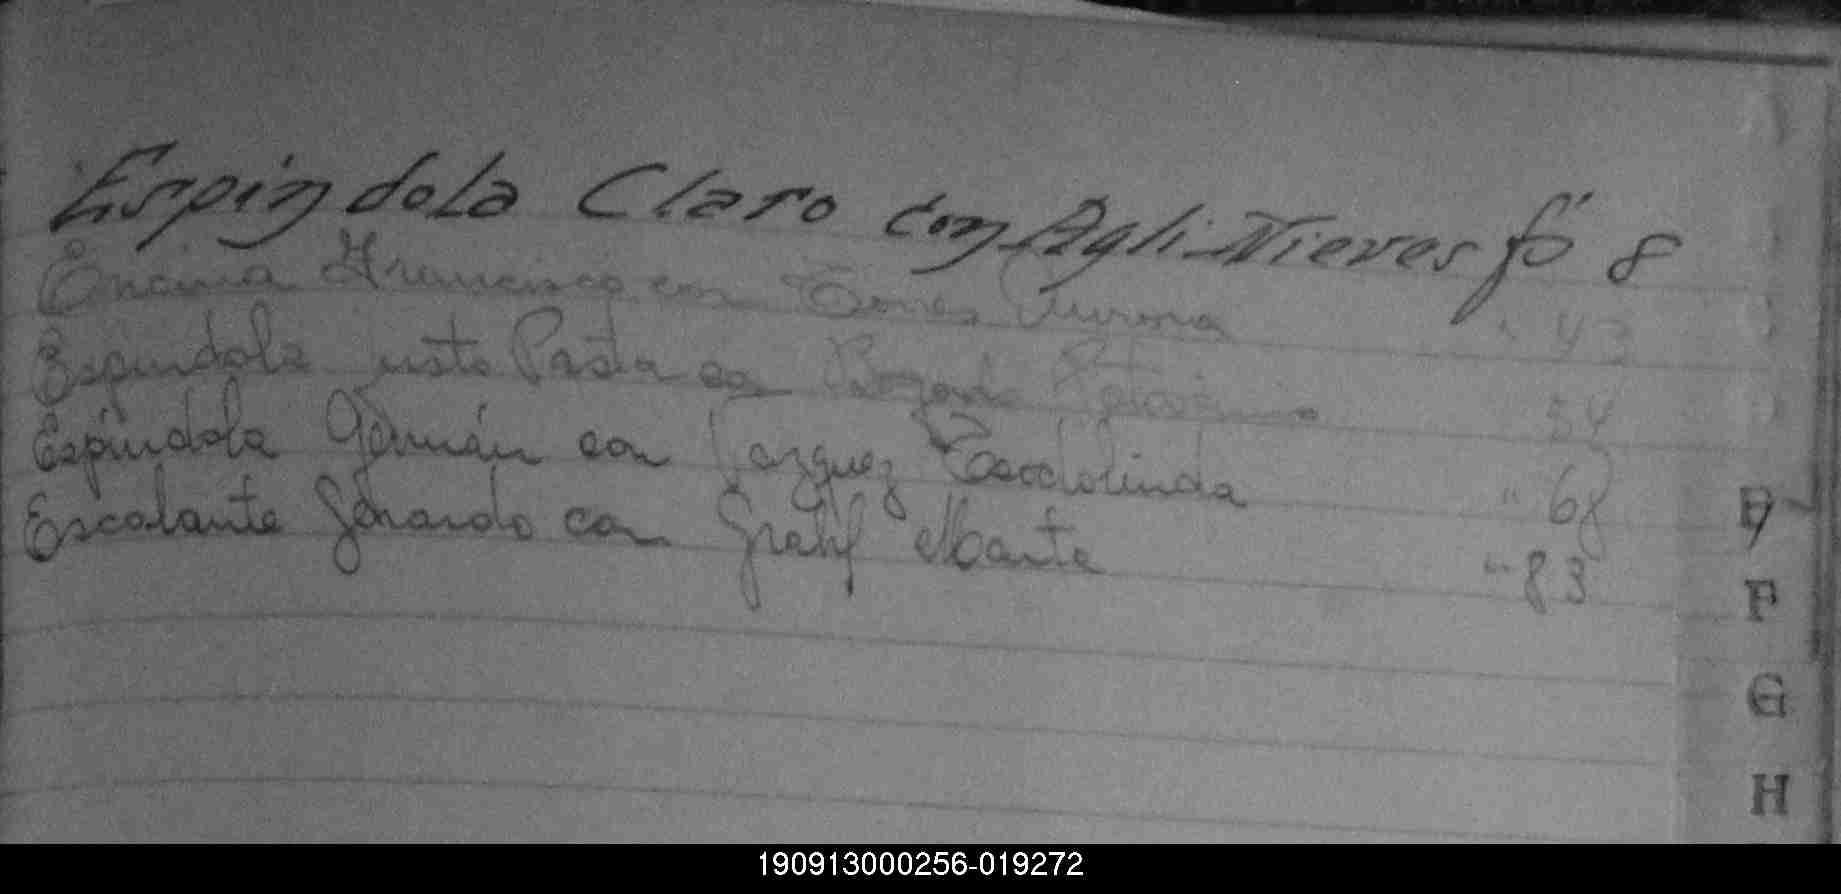 Espindola Claro con Agli Nieves fº 8
Encina Francisco con Torres Aurora " 43
Espindola Justo Pastor con 54
Espíndola Germán con Vazquez Teodolinda " 68
Escalante Gerardo con Marta " 83
E
F
G
H
190913000256-019272